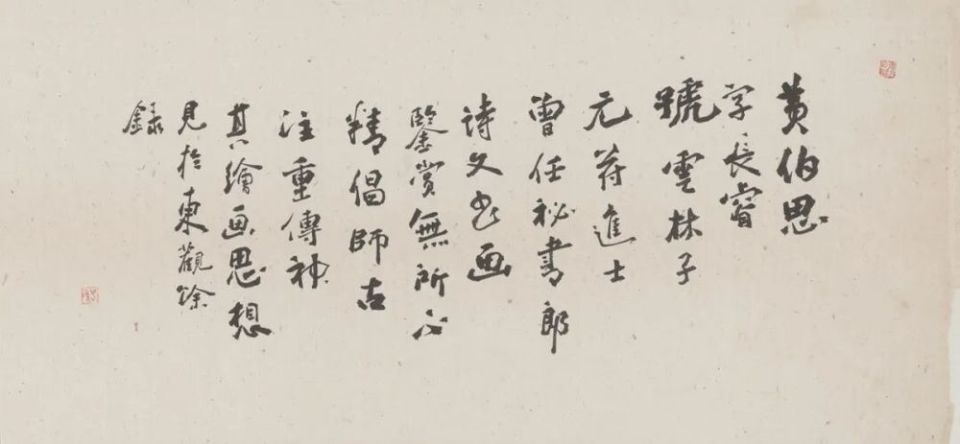 黄伯思
字長睿
號雲林子
元符進士
曾任祕書郎
詩文书画
鑒賞無所不
精倡師古
注重傳神
其繪画思想
見於東觀餘
録